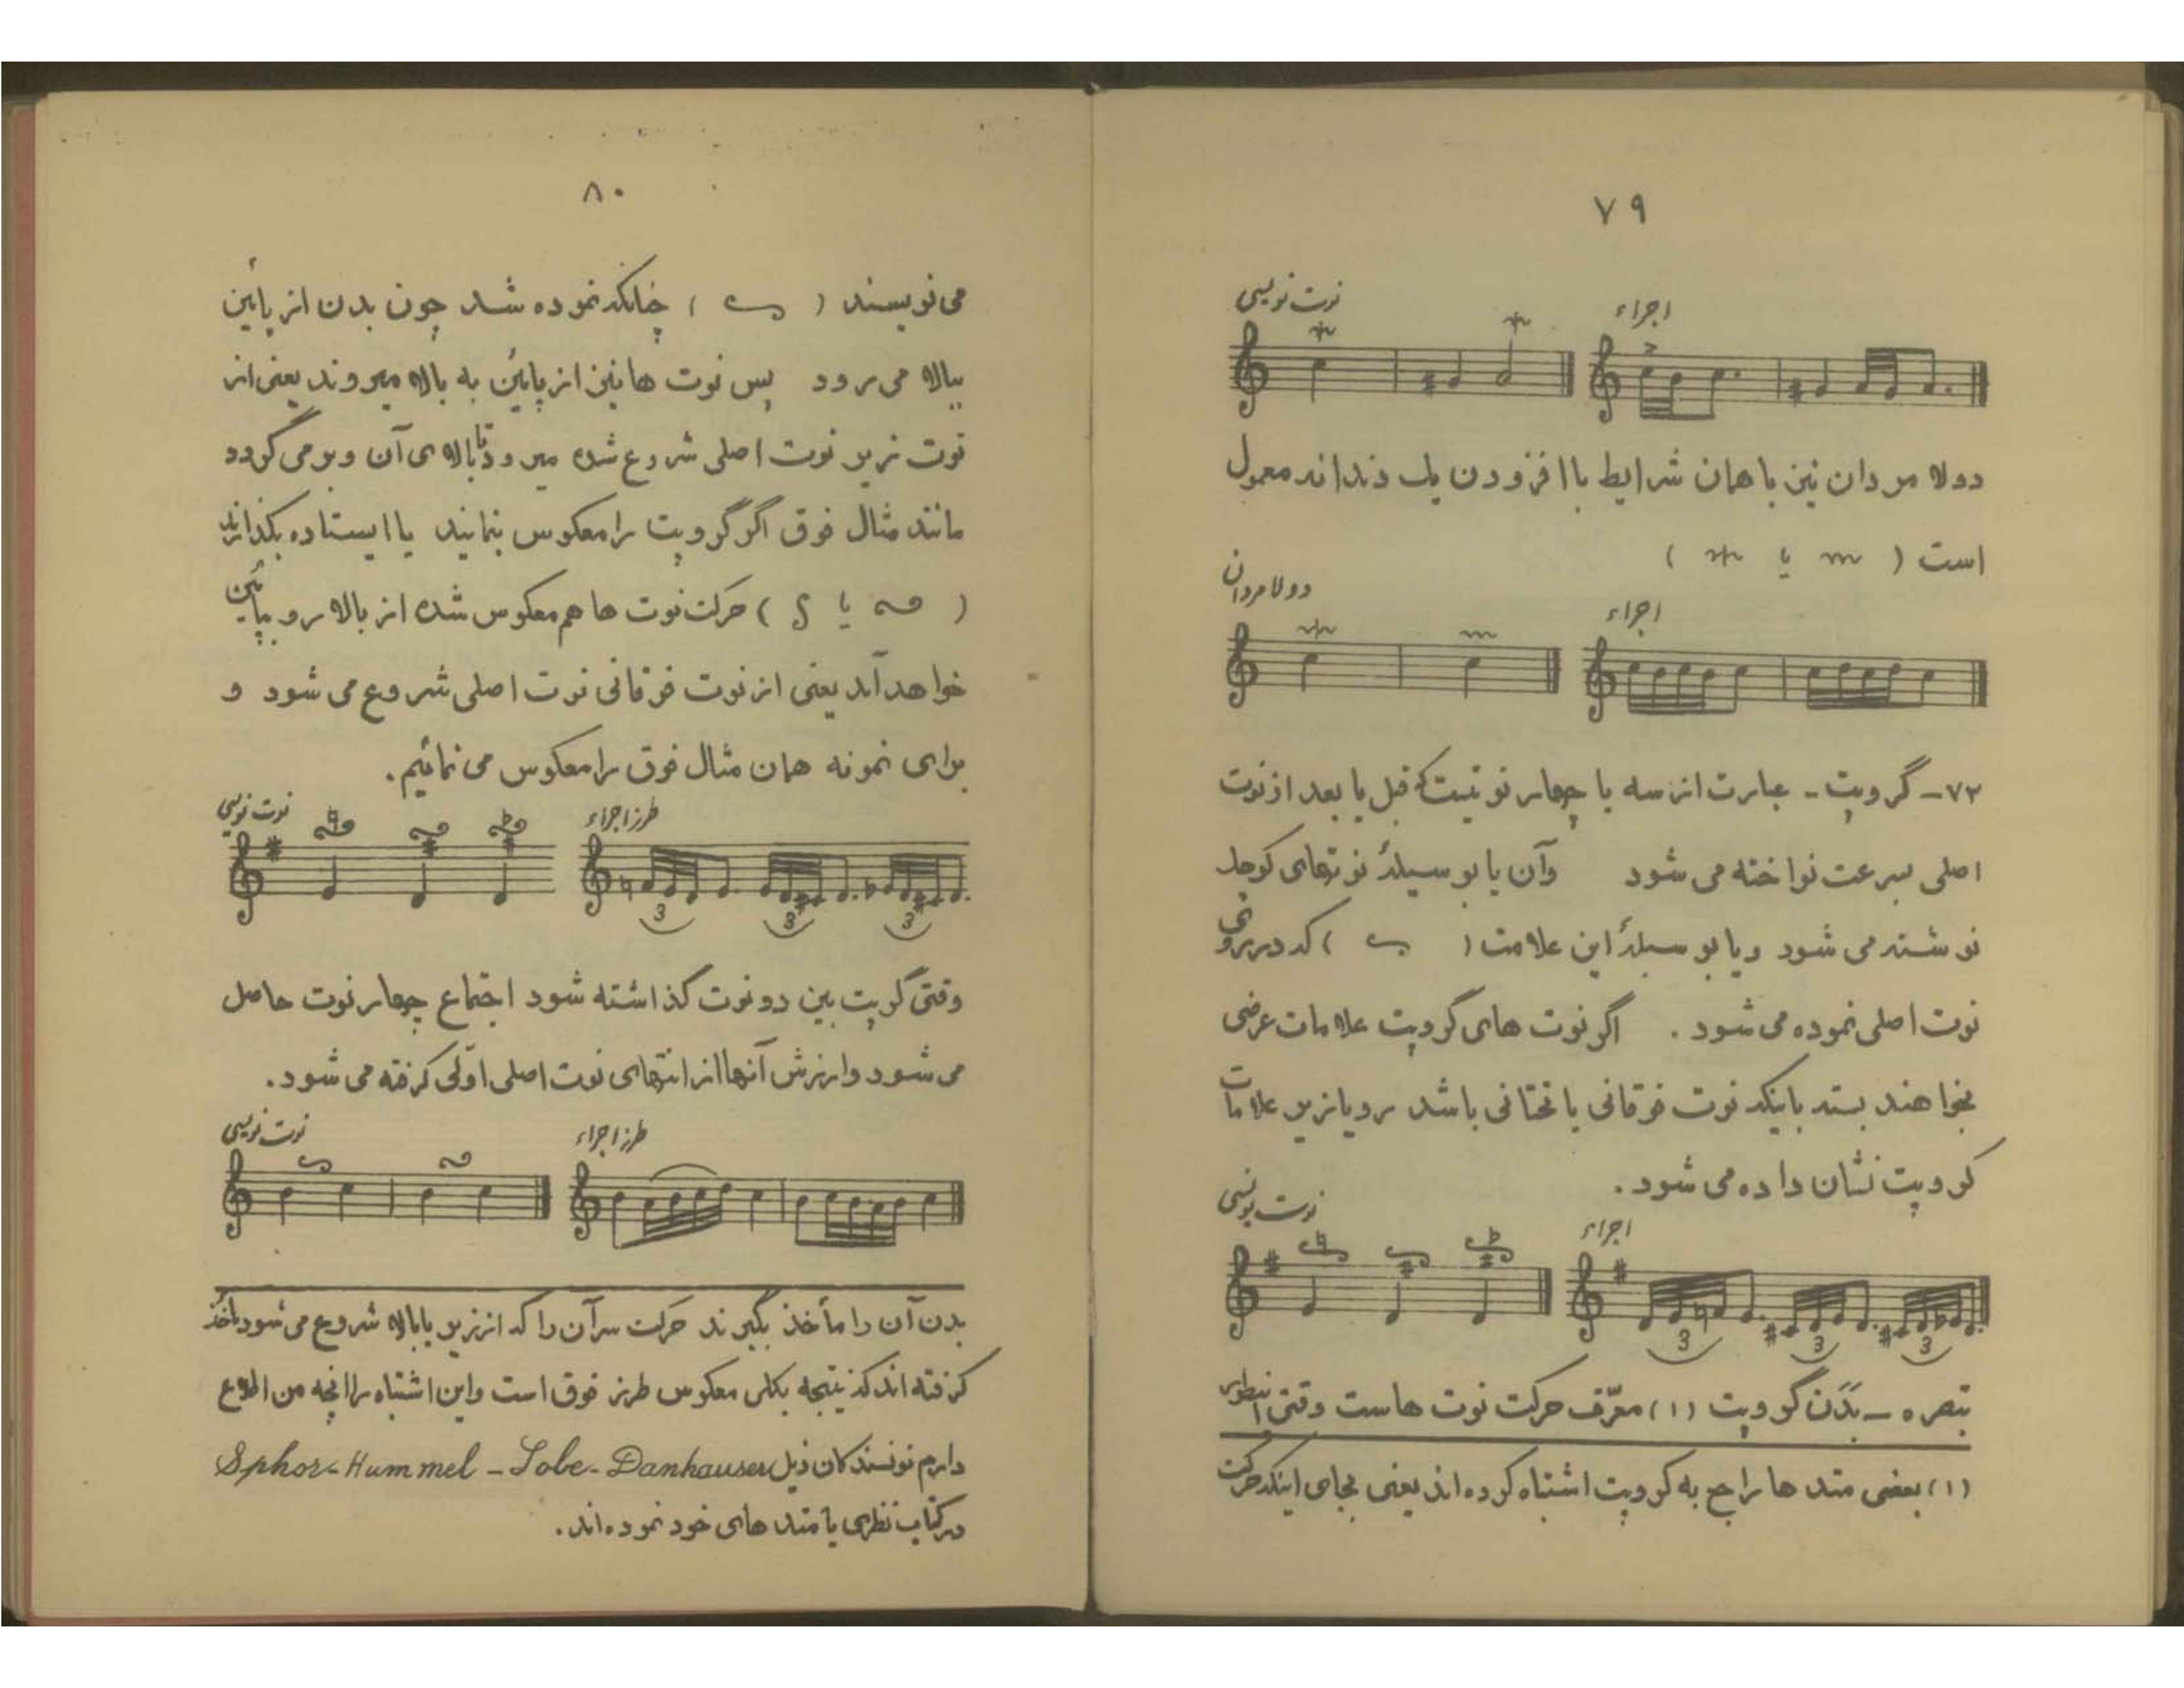 ۷۹
نوت نویسی
اجراء
دولا مردان نیز با همان شرایط با افزودن یك دندانه معمول
است ( یا )
دولا مردان
اجراء
۷۲- گروپت - عبارت از سه یا چهار نوتیست که قبل یا بعد از نوت
اصلی بسرعت نواخته می شود وآن یا بوسیلهٔ نوتهای کوچك
نوشته می شود ویا بوسیلهٔ این علامت ( ) که در روی
نوت اصلی نموده می شود . اگر نوت های گروپت علامات عرضی
بخواهند بسته باینکه نوت فوقانی یا تحتانی باشد رو یا زیر علامات
گروپت نشان داده می شود .
نوت نویسی
اجراء
3 3 3
تبصره - بَدَن گروپت (۱) معرّف حرکت نوت هاست وقتی اینطور
(۱) بعضی متد ها راجع به گروپت اشتباه کرده اند یعنی بجای اینکه حرکت
۸۰
می نویسند ( ) چنانکه نموده شد چون بدن از پائین
ببالا می رود پس نوت ها نیز از پائین به بالا میروند یعنی از
نوت زیر نوت اصلی شروع شده میرود تا بالا ی آن و بر می گردد
مانند مثال فوق اگر گروپت را معکوس بنمایند یا ایستاده بگذارند
( یا ) حرکت نوت ها هم معکوس شده از بالا رو بپائین
خواهد آمد یعنی از نوت فوقانی نوت اصلی شروع می شود و
برای نمونه همان مثال فوق را معکوس می نمائیم .
نوت نویسی
طرز اجراء
3 3 3
وقتی گروپت بین دو نوت گذاشته شود اجتماع چهار نوت حاصل
می شود وارزش آنها از انتهای نوت اصلی اوّلی گرفته می شود .
نوت نویسی
طرز اجراء
بدن آن را مأخذ بگیرند حرکت سرآن را که از زیر یا بالا شروع می شود مأخذ
گرفته اند که نتیجه بکلی معکوس طرز فوق است واین اشتباه را آنچه من اطلاع
دارم نویسندگان ذیل Sphor - Hummel - Lobe - Danhauser
در کتاب نظری یا متد های خود نموده اند .